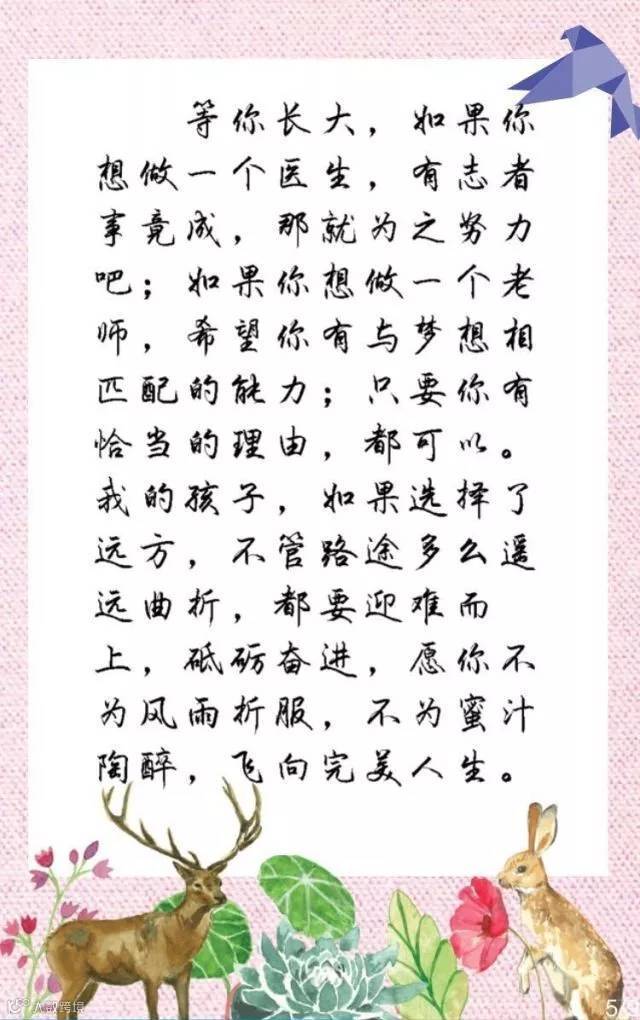 等你长大，如果你
想做一个医生，有志者
事竟成，那就为之努力
吧；如果你想做一个老
师，希望你有与梦想相
匹配的能力；只要你有
恰当的理由，都可以。
我的孩子，如果选择了
远方，不管路途多么遥
远曲折，都要迎难而
上，砥砺奋进，愿你不
为风雨折服，不为蜜汁
陶醉，飞向完美人生。
大数跨境